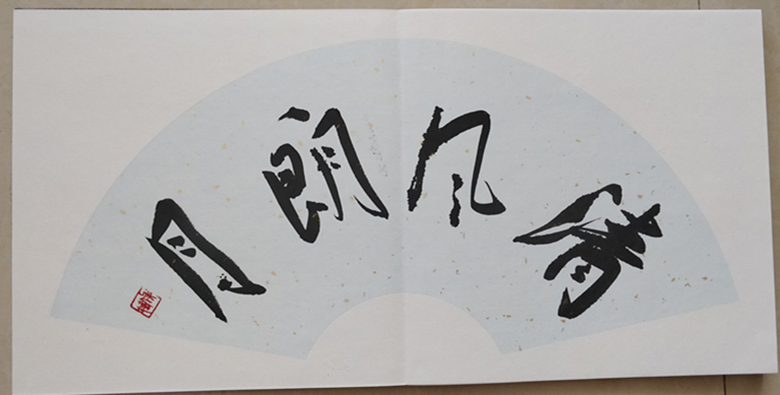 清风朗月